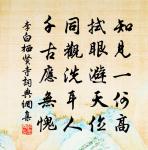 知見一何高
拭眼避天位
同觀洗耳人
千古應無愧
李白栖賢寺詞典網集